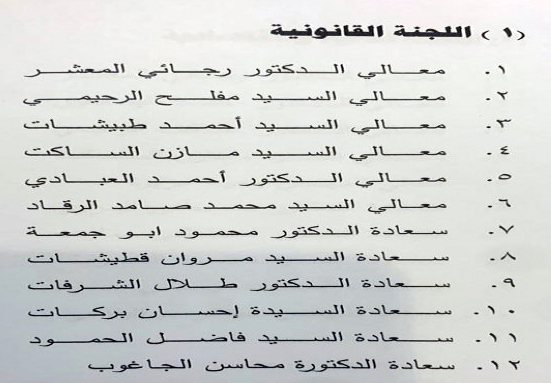 (١) اللجنة القانونية
١. معالي الدكتور رجائي المعشر
٢. معالي السيد مفلح الرحيمي
٣. معالي السيد أحمد طبيشات
٤. معالي السيد مازن الساكت
٥. معالي الدكتور أحمد العبادي
٦. معالي السيد محمد صامد الرقاد
٧. سعادة الدكتور محمود ابو جمعة
٨. سعادة السيد مروان قطيشات
٩. سعادة الدكتور طلال الشرفات
١٠. سعادة السيدة إحسان بركات
١١. سعادة السيد فاضل الحمود
١٢. سعادة الدكتورة محاسن الجاغوب